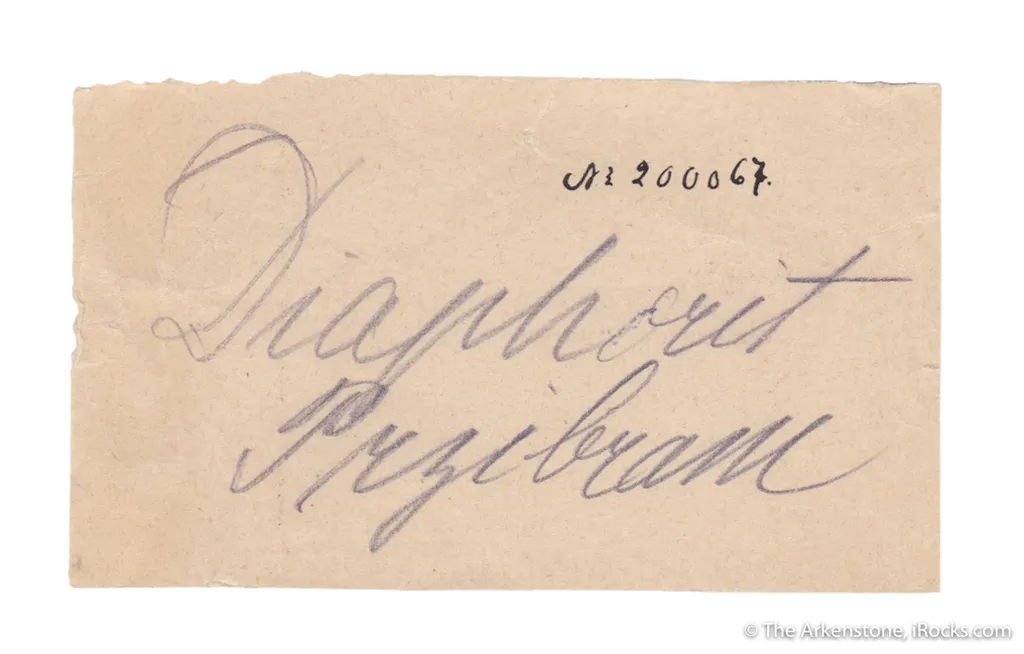 Nr 200067.
Diaphorit
Przibram
© The Arkenstone, iRocks.com